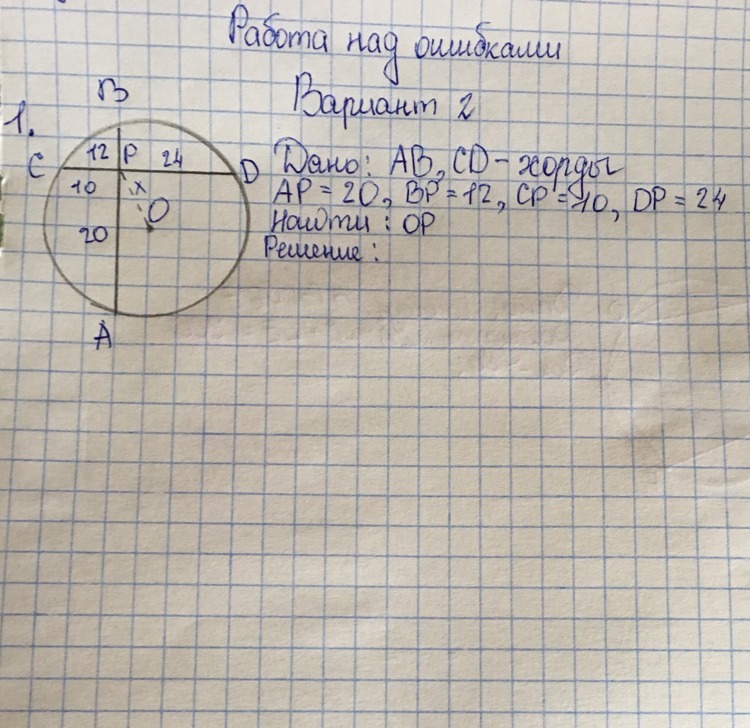 Работа над ошибками
Вариант 2
1.
B
C
12
P
24
D
10
x
O
20
A
Дано: AB, CD - хорды
AP = 20, BP = 12, CP = 10, DP = 24
Найти: OP
Решение: